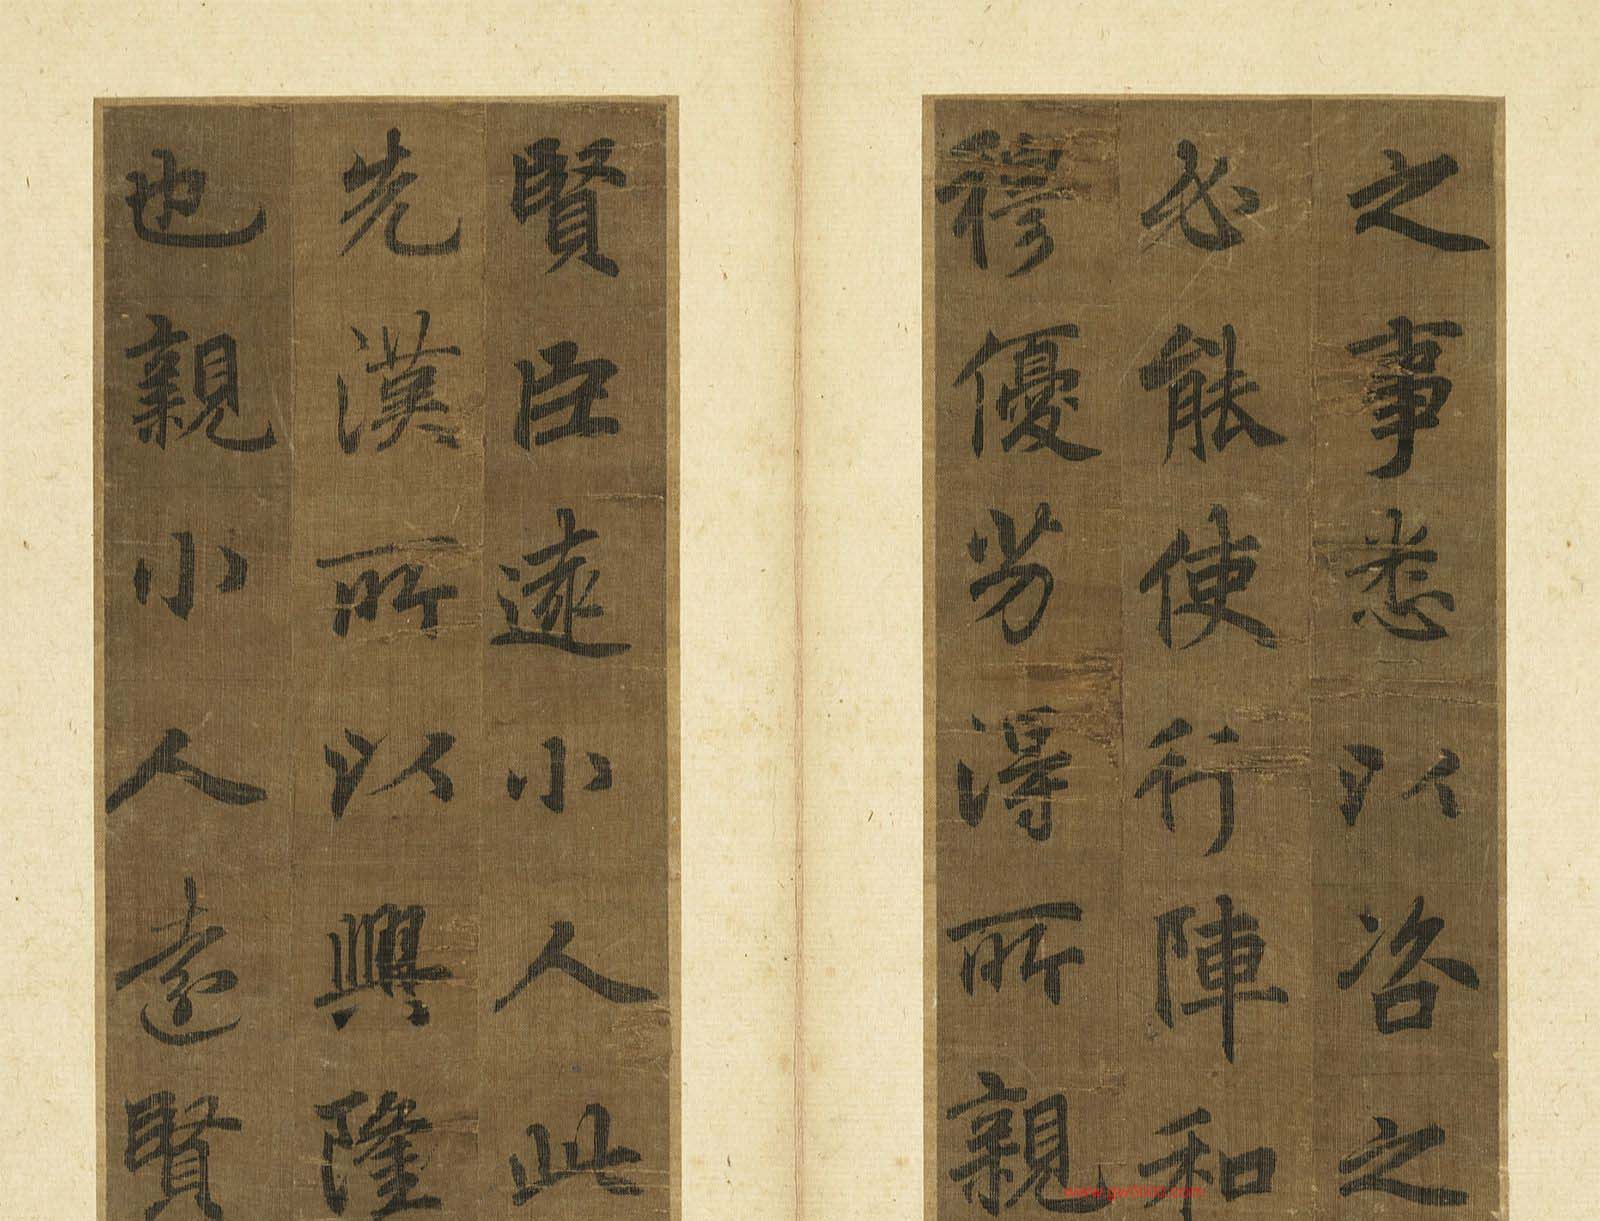 之事悉以咨之
必能使行陣和
穆優劣得所親
賢臣遠小人此
先漢所以興隆
也親小人遠賢
www.gw5000.com